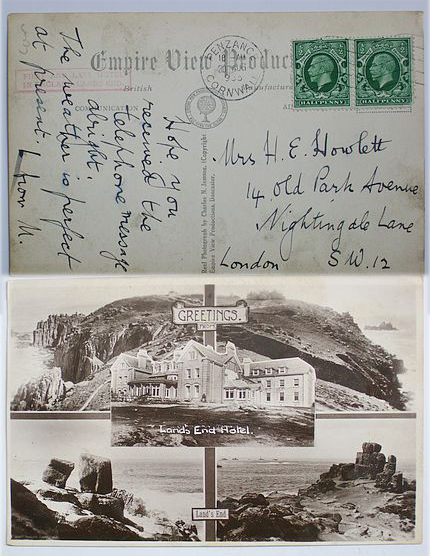 Empire View Produc
British
Manufacture
COMMUNICATION
AD
PENZANCE
CORNWALL
HALFPENNY
HALFPENNY
Hope you
received the
telephone message
alright.
The weather is perfect
at present. from
Real Photograph by Charles N. Jeanous, (Copyright)
Empire View Productions, Doncaster.
Mrs H. E. Howlett
14, Old Park Avenue
Nightingale Lane
London S.W.12
GREETINGS.
FROM
Land's End Hotel.
Land's End